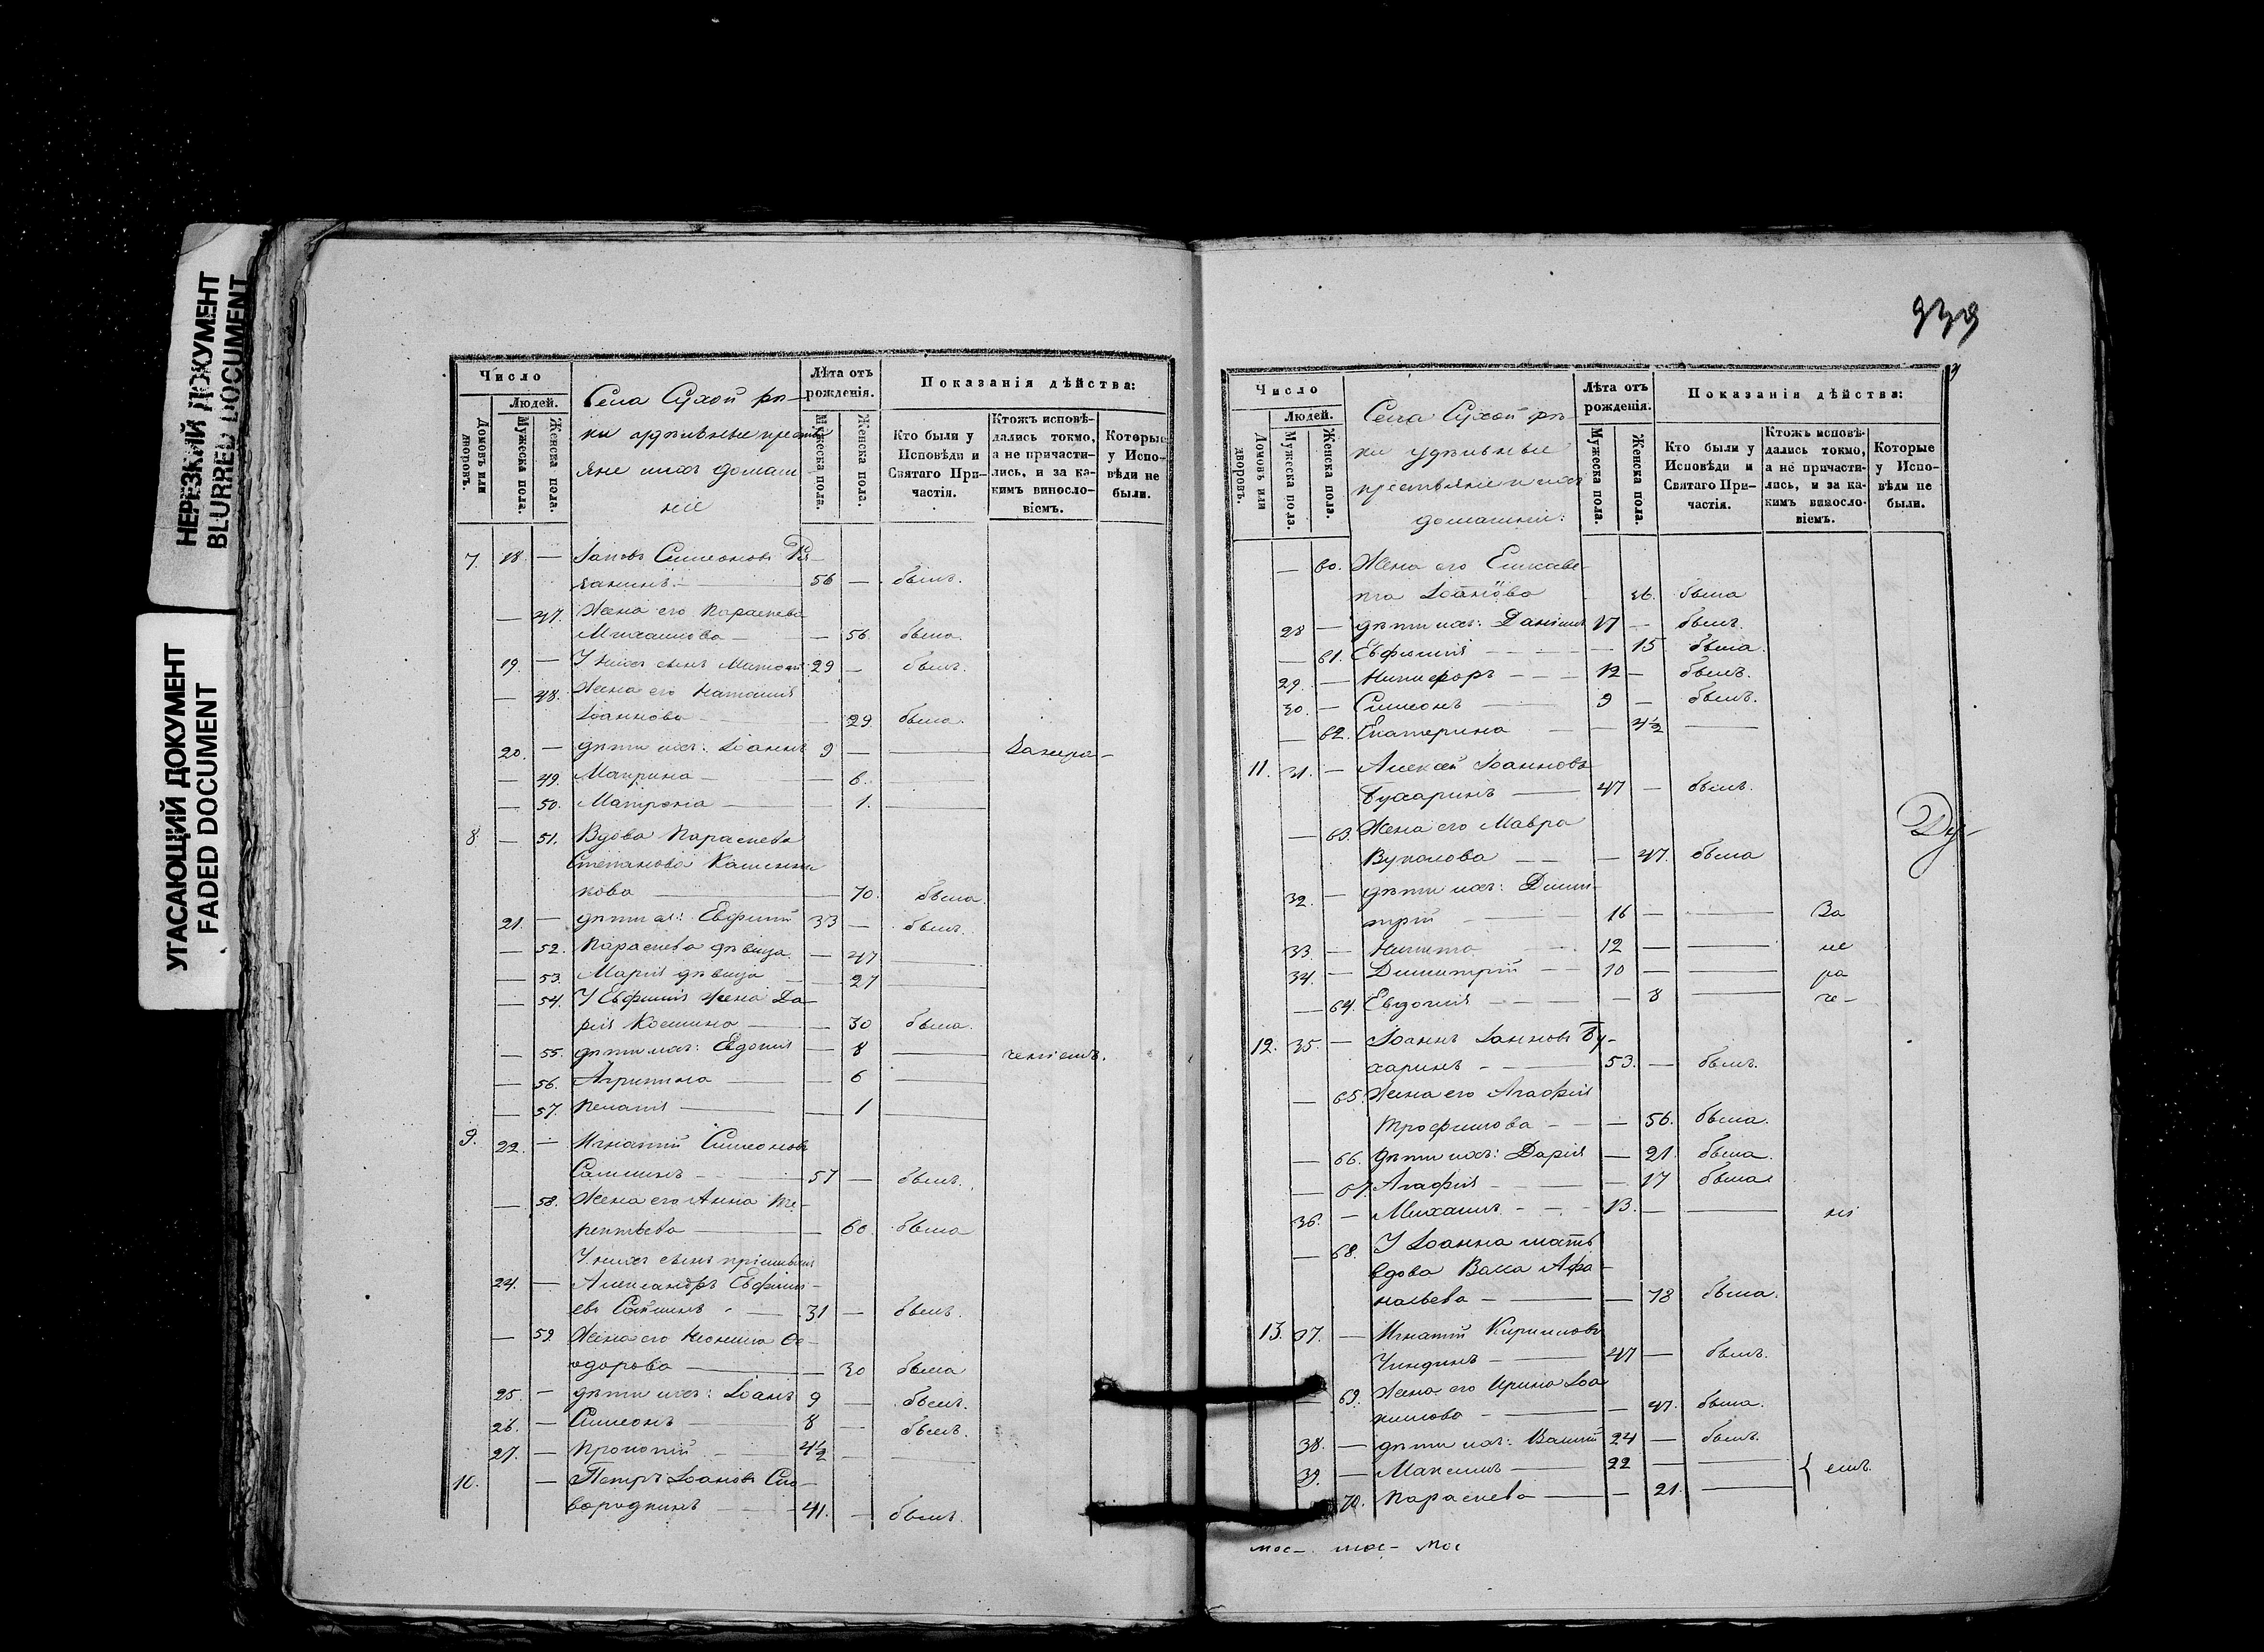 НЕРЕЗКИЙ ДОКУМЕНТ
BLURRED DOCUMENT
УГАСАЮЩИЙ ДОКУМЕНТ
FADED DOCUMENT
Число
Людей.
Домовъ или дворовъ.
Мужеска пола.
Женска пола.
Села Сухой рѣ-
ки удѣльные крестья
яне ихъ домаш
ніе
Лѣта отъ рожденія.
Мужеска пола.
Женска пола.
Показанія дѣйства:
Кто были у Исповѣди и Святаго При-частія.
Ктожъ исповѣ-дались токмо, а не причасти-лись, и за ка-кимъ виносло-віемъ.
Которые у Испо-вѣди не были.
7. 18 —
56 — былъ.
— 47. Жена его Параскева
Михайлова — — 56. была.
19. — У нихъ сынъ 29 — былъ.
— 48. Жена его Наталія
Іоаннова — — 29. была.
20. — дѣти ихъ: Іоаннъ 9 — —
— 49. Макрина — — 6. —
— 50. Матрона — — 1. —
8. — 51. Вдова Параскева
Степанова
кова — — 70. была.
21. — дѣти ея: Евфимій 33 — былъ.
— 52. Параскева дѣвица. — 47 —
— 53. Марія дѣвица — 27 —
— 54. У Евфимія жена Да-
рія Космина — — 30 была.
— 55. дѣти ихъ: Евдокія — 8 — ченіемъ.
— 56. Агрипина — — 6 —
— 57. Пелагія — — 1 —
9. 22. — Игнатій Симеоновъ
57 — былъ.
— 58. Жена его Анна Те-
рентьева — — 60. была
У нихъ сынъ пріимышъ
24. — Александръ Евфимі-
евъ 31 — былъ.
— 59. Жена его Неонила Ѳе-
одорова — — 30 была
25. — дѣти ихъ: Іоанъ 9 — былъ.
26. — Симеонъ — 8 — былъ.
27. — Прокопій — 4½ — —
10. — Петръ Іоановъ Ско-
вородкинъ — 41. — былъ.
939
Число
Людей.
Домовъ или дворовъ.
Мужеска пола.
Женска пола.
Села Сухой рѣ-
ки удѣльные
крестьяне и ихъ
домашніе:
Лѣта отъ рожденія.
Мужеска пола.
Женска пола.
Показанія дѣйства:
Кто были у Исповѣди и Святаго При-частія.
Ктожъ исповѣ-дались токмо, а не причасти-лись, и за ка-кимъ виносло-віемъ.
Которые у Испо-вѣди не были.
— 60. Жена его Елисаве-
та Іоанова была
28 — дѣти ихъ: Даніилъ 17 — былъ.
— 61. Евфимія — — 15 была.
29. — Никифоръ — 12 — былъ.
30. — Симеонъ — 9 — былъ.
— 62. Екатерина — —
11. 31. — Алексей Іоанновъ
Бухаринъ — 47 — былъ.
— 63. Жена его Мавра
Вуколова — — 47. была
32. — дѣти ихъ: Дими-
трій — 16 — — За
33. — Никита 12 — — не
34. — Димитрій — 10 — — ра
— 64. Евдокія — — 8 — че-
12. 35. — Іоаннъ Іанновъ Бу-
харинъ — 53. — былъ.
— 65. Жена его Агафія
Трофимова — — 56. была.
— 66. дѣти ихъ: Дарія — 21. была.
— 67. Агафія — — 17 была.
36. — Михаилъ — 13. — — ні
— 68. У Іоанна мать
вдова Васса Афа-
насьева — — 78 была.
13. 37. — Игнатій Кирилловъ
Чиндинъ — 47 — былъ.
— 69. Жена его Ирина Іоа
кимова — — 47. была.
38. — дѣти ихъ: 24 — былъ.
39. — Максимъ — 22 — — емъ.
70. Параскева — — 21. —